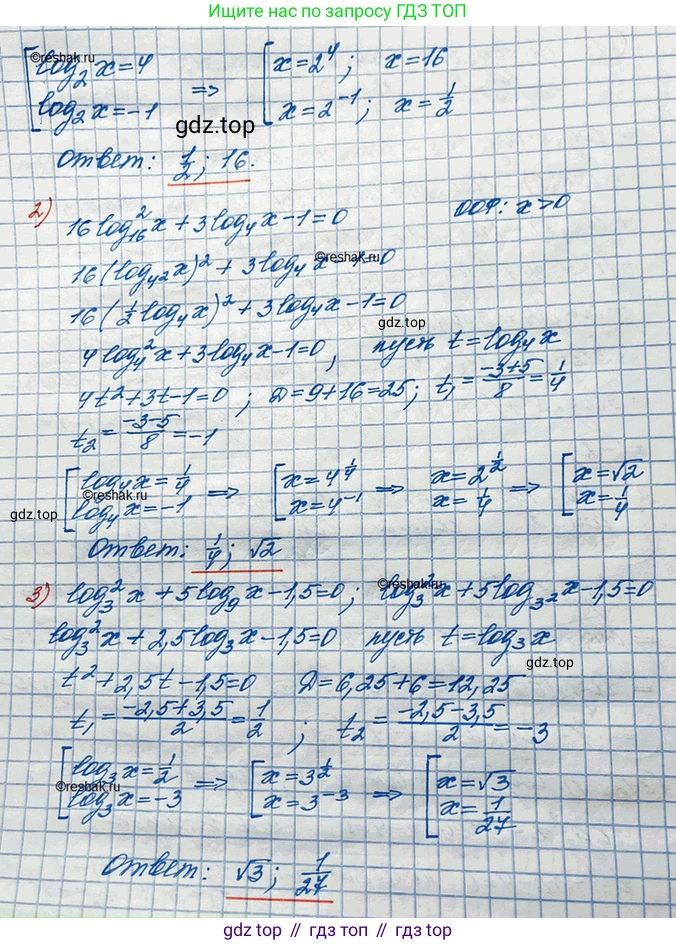 Ищите нас по запросу ГДЗ ТОП
©reshak.ru
[log₂x=4 ⇒ [x=2⁴; x=16
log₂x=-1 x=2⁻¹; x=1/2
gdz.top
Ответ: 1/2; 16.
2) 16log²₁₆x+3log₄x-1=0 ООФ: x>0
16(log₄²x)²+3log₄x-1=0
©reshak.ru
16(1/2log₄x)²+3log₄x-1=0
gdz.top
4log₄²x+3log₄x-1=0, пусть t=log₄x
4t²+3t-1=0; D=9+16=25; t₁=(-3+5)/8=1/4
t₂=(-3-5)/8=-1
[log₄x=1/4 ⇒ [x=4^(1/4) ⇒ x=2^(1/2) ⇒ [x=√2
©reshak.ru
log₄x=-1 x=4⁻¹ x=1/4 x=1/4
gdz.top gdz.top
Ответ: 1/4; √2
3) log₃²x+5log₉x-1,5=0; log₃²x+5log₃²x-1,5=0
©reshak.ru
log₃²x+2,5log₃x-1,5=0 пусть t=log₃x
gdz.top
t²+2,5t-1,5=0 D=6,25+6=12,25
t₁=(-2,5+3,5)/2=1/2; t₂=(-2,5-3,5)/2=-3
[log₃x=1/2 ⇒ [x=3^(1/2) ⇒ [x=√3
©reshak.ru
log₃x=-3 x=3⁻³ x=1/27
Ответ: √3; 1/27
gdz.top // гдз топ // гдз.топ